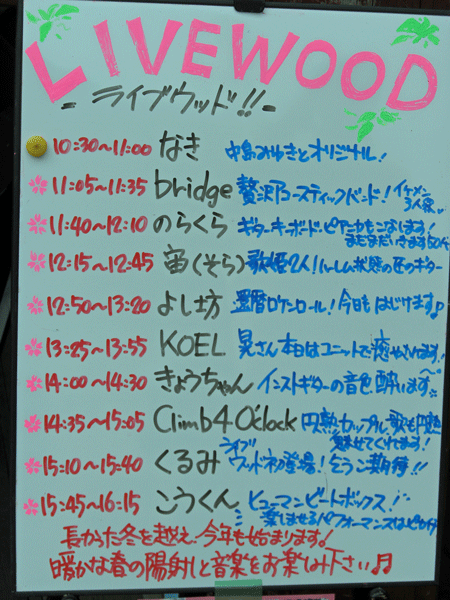 LIVEWOOD
- ライブウッド!! -
10:30~11:00 なき 中島みゆきとオリジナル!
11:05~11:35 bridge 贅沢アコースティックバンド! イケメン3人衆
11:40~12:10 のらくら ギター・キーボード・ピアニカをこなします!
まだまだいきます
12:15~12:45 宙(そら) 歌姫2人! 状態の匠のギター
12:50~13:20 よし坊 還暦ロケンロール! 今日もはじけます♪
13:25~13:55 KOEL 晃さん本日はユニットで癒やされます!
14:00~14:30 きょうちゃん インストギターの音色酔います
14:35~15:05 Climb4O'clock 円熟カップル歌も円熟
魅せてくれます!
15:10~15:40 くるみ ライブウッド初登場! そうご期待!!
15:45~16:15 こうくん ヒューマンビートボックス!
楽しませるパフォーマンスは
長かった冬を越え、今年も始まります!
暖かな春の陽射しと音楽をお楽しみ下さい♫